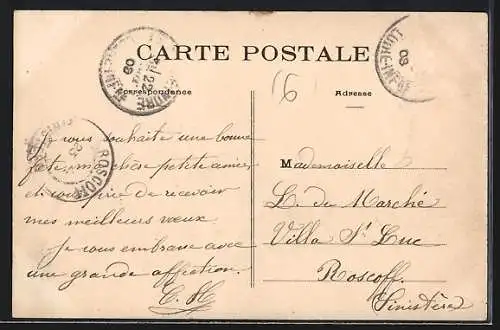 CARTE POSTALE
Correspondance
Adresse
16
Je vous souhaite une bonne
fête, ma chère petite amie,
et de recevoir
mes meilleurs vœux.
Je vous embrasse avec
une grande affection.
C. H
Mademoiselle
L. Le Marché
Villa St Luc
Roscoff.
Finistère
22
09
LOIRE-INFRE
09
ROSCOFF